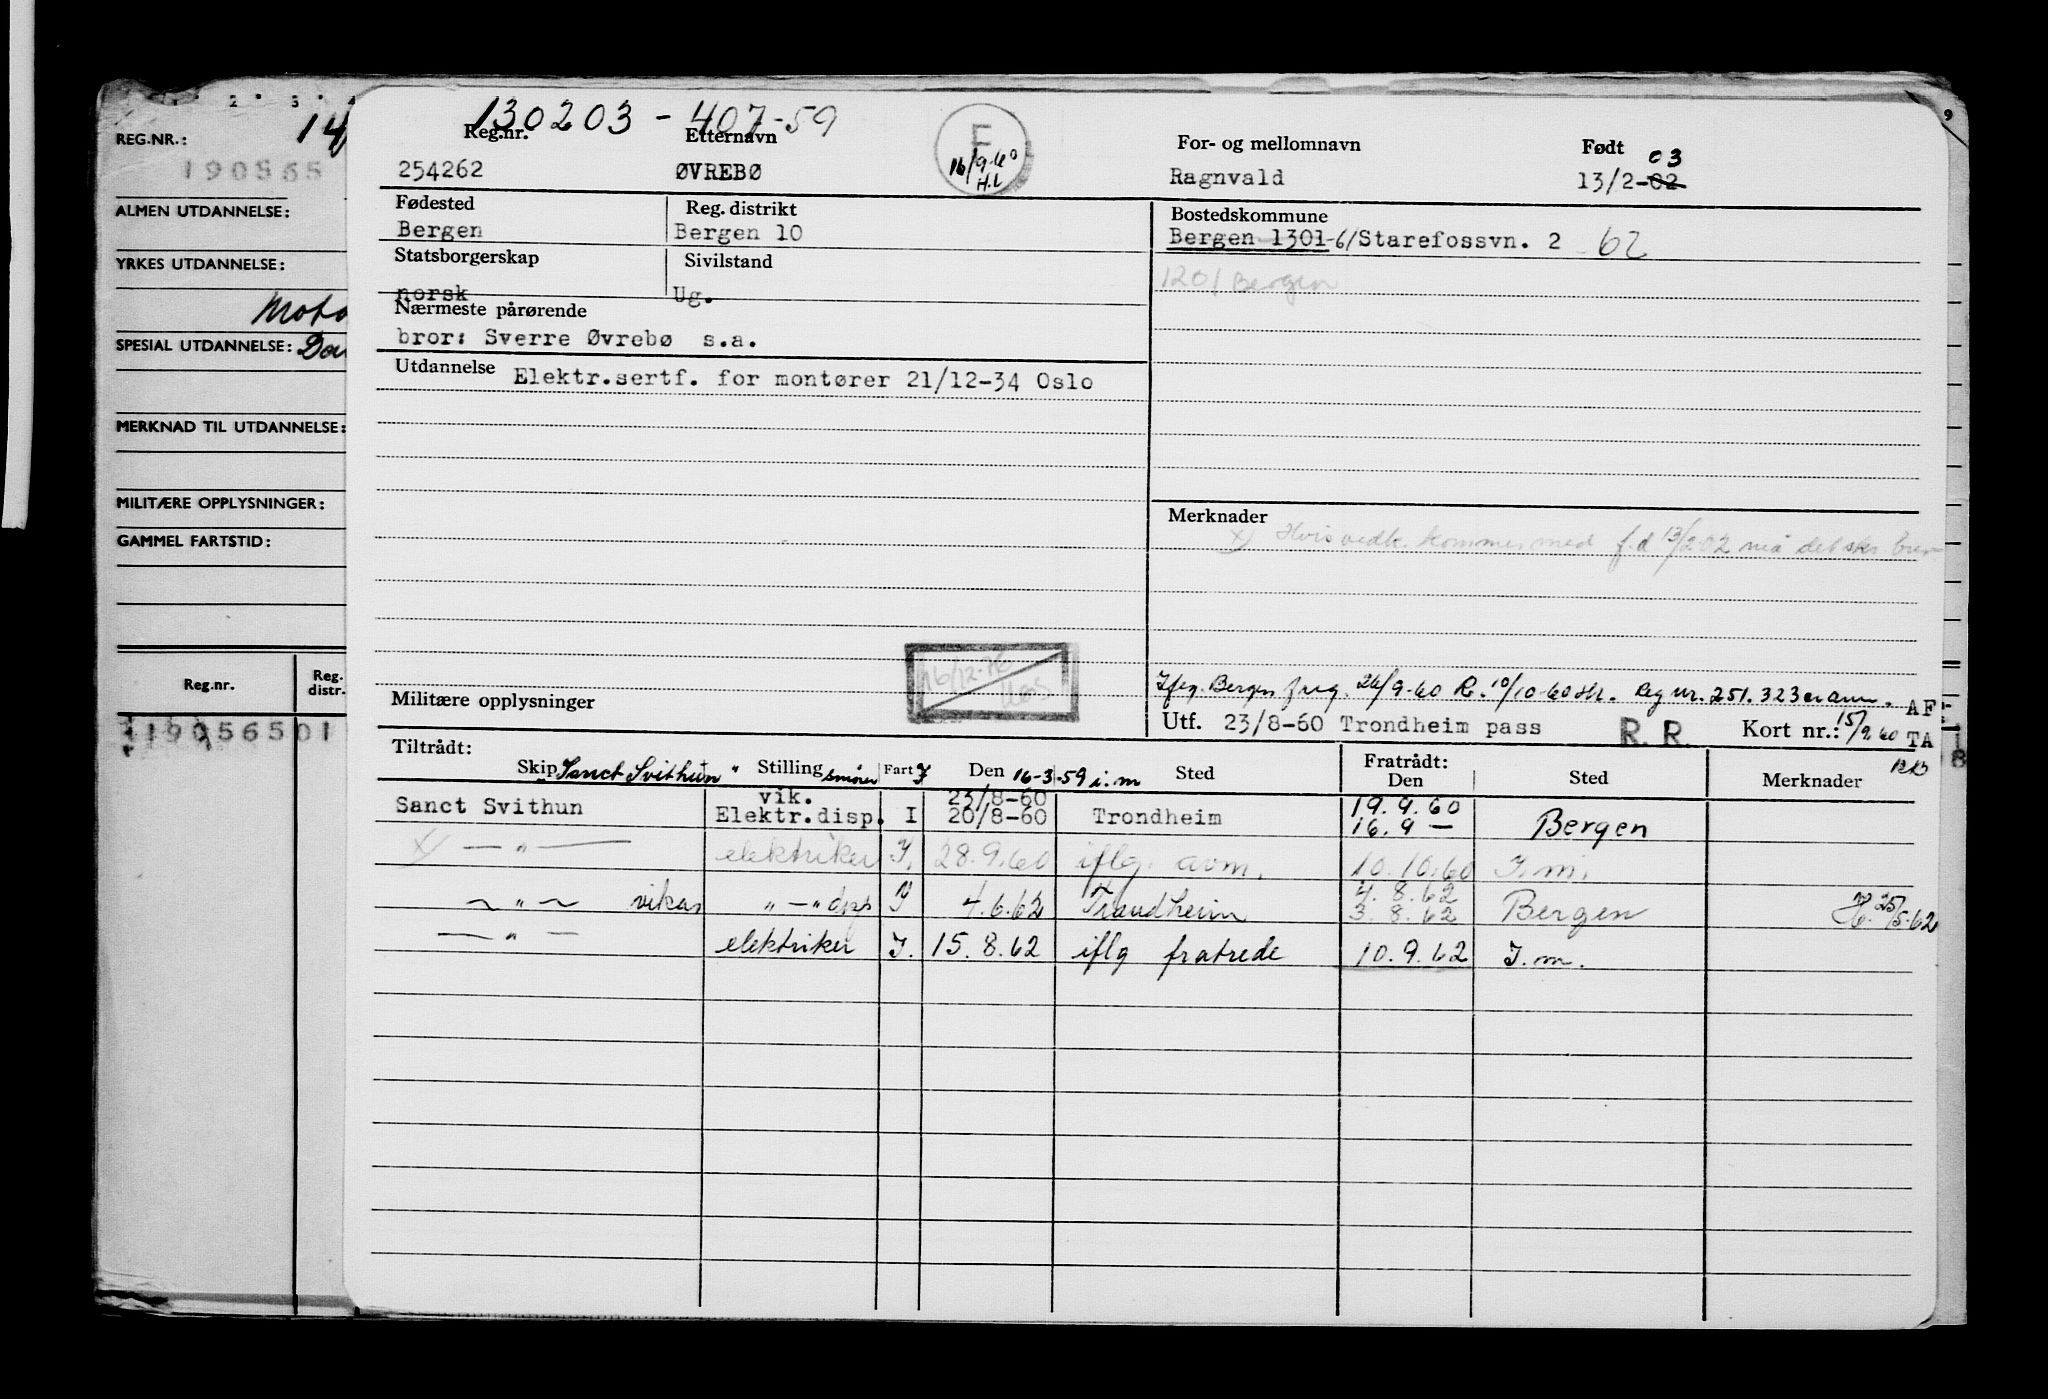 REG.NR.: 14
190565
ALMEN UTDANNELSE:
YRKES UTDANNELSE:
SPESIAL UTDANNELSE:
MERKNAD TIL UTDANNELSE:
MILITÆRE OPPLYSNINGER:
GAMMEL FARTSTID:
Reg.nr. Reg. distr.
119056501
130203 - 407-59
Reg.nr. Etternavn For- og mellomnavn Født
254262 ØVREBØ E 16/9-60 H.L Ragnvald 13/2-02 03
Fødested Reg. distrikt Bostedskommune
Bergen Bergen 10 Bergen 1301-61 Starefossvn. 2 62
Statsborgerskap Sivilstand 1201 Bergen
norsk Ug.
Nærmeste pårørende
bror: Sverre Øvrebø s.a.
Utdannelse Elektr.sertf. for montører 21/12-34 Oslo
Merknader
x) Hvis vedk. kommer med f.d 13/2 02 må det skr.
Militære opplysninger
Bergen 26/9-60 R. 10/10-60 Reg nr. 251.323 er ann.
Utf. 23/8-60 Trondheim pass R.R. Kort nr.: 15/9.60 AF TA
Tiltrådt: Fratrådt:
Skip "Sanct Svithun" Stilling smører Fart I Den 16-3-59 i.m Sted Den Sted Merknader
Sanct Svithun vik. Elektr.disp. I 23/8-60 20/8-60 Trondheim 19.9.60 16.9 — Bergen
x) — " — elektriker I. 28.9.60 iflg. avm. 10.10.60 I.m.
— " — vikar " — " dsp I 4.6.62 Trondheim 4.8.62 3.8.62 Bergen 25/5.62
— " — elektriker I. 15.8.62 iflg fratrede 10.9.62 I.m.